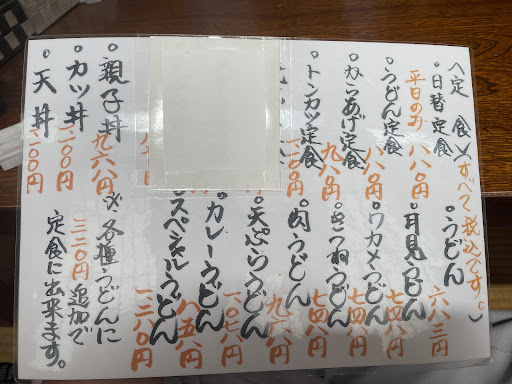 〈定食〉(すべて税込です。)
・日替定食
平日のみ 八八〇円
・うどん定食 八八〇円
・からあげ定食 九八〇円
・トンカツ定食 一二〇〇円
・親子丼 九六八円
・カツ丼 一二〇〇円
・天丼 一二〇〇円
・うどん 六八三円
・月見うどん 七四八円
・ワカメうどん 七四八円
・きつねうどん 七四八円
・肉うどん 九六八円
・天ぷらうどん 一〇七八円
・カレーうどん 八五八円
・スペシャルうどん 一二八〇円
※各種うどんに
三三〇円追加で
定食に出来ます。